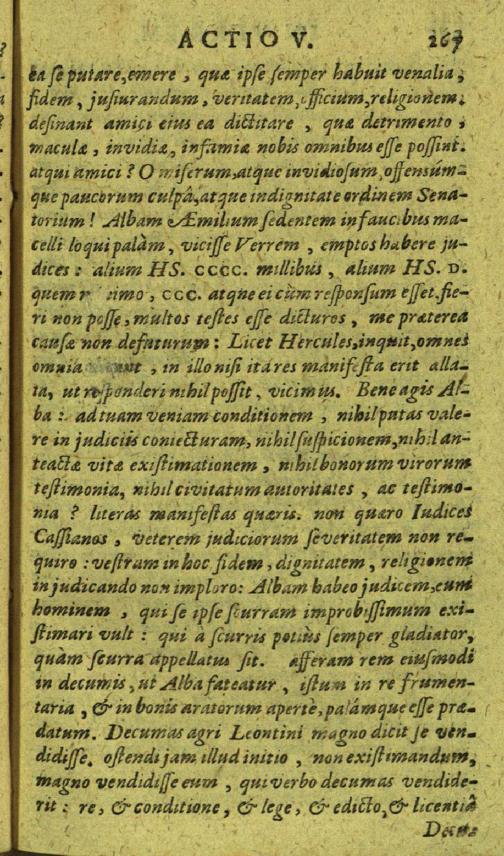 ACTIO V. 267
ea se putare, emere, quæ ipse semper habuit venalia,
fidem, jusiurandum, veritatem, officium, religionem:
desinant amici eius ea dictitare, quæ detrimento,
maculæ, invidiæ, infamiæ nobis omnibus esse possint.
atqui amici? O miserum, atque invidiosum, offensúm-
que paucorum culpâ, atque indignitate ordinem Sena-
torium! Albam Æmilium sedentem in faucibus ma-
celli loqui palàm, vicisse Verrem, emptos habere ju-
dices: alium HS. CCCC. millibus, alium HS. D.
quem simo, CCC. atque ei cùm responsum esset, fie-
ri non posse, multos testes esse dicturos, me præterea
causæ non defuturum: Licet Hercules, inquit, omnes
omnia , in illo nisi ita res manifesta erit alla-
ta, ut responderi nihil possit, vicimus. Bene agis Al-
ba: ad tuam veniam conditionem, nihil putas vale-
re in judiciis coniecturam, nihil suspicionem, nihil an-
teactæ vitæ existimationem, nihil bonorum virorum
testimonia, nihil civitatum autoritates, ac testimo-
nia? literas manifestas quæris. non quæro Iudices
Cassianos, veterem judiciorum severitatem non re-
quiro: vestram in hoc fidem, dignitatem, religionem
in judicando non imploro: Albam habeo judicem, eum
hominem, qui se ipse scurram improbissimum exi-
stimari vult: qui à scurris potiùs semper gladiator,
quàm scurra appellatus sit. afferam rem eiusmodi
in decumis, ut Alba fateatur, istum in re frumen-
taria, & in bonis aratorum apertè, palámque esse præ-
datum. Decumas agri Leontini magno dicit se ven-
didisse. ostendi jam illud initio, non existimandum,
magno vendidisse eum, qui verbo decumas vendide-
rit: re, & conditione, & lege, & edicto, & licentiâ
Decu-